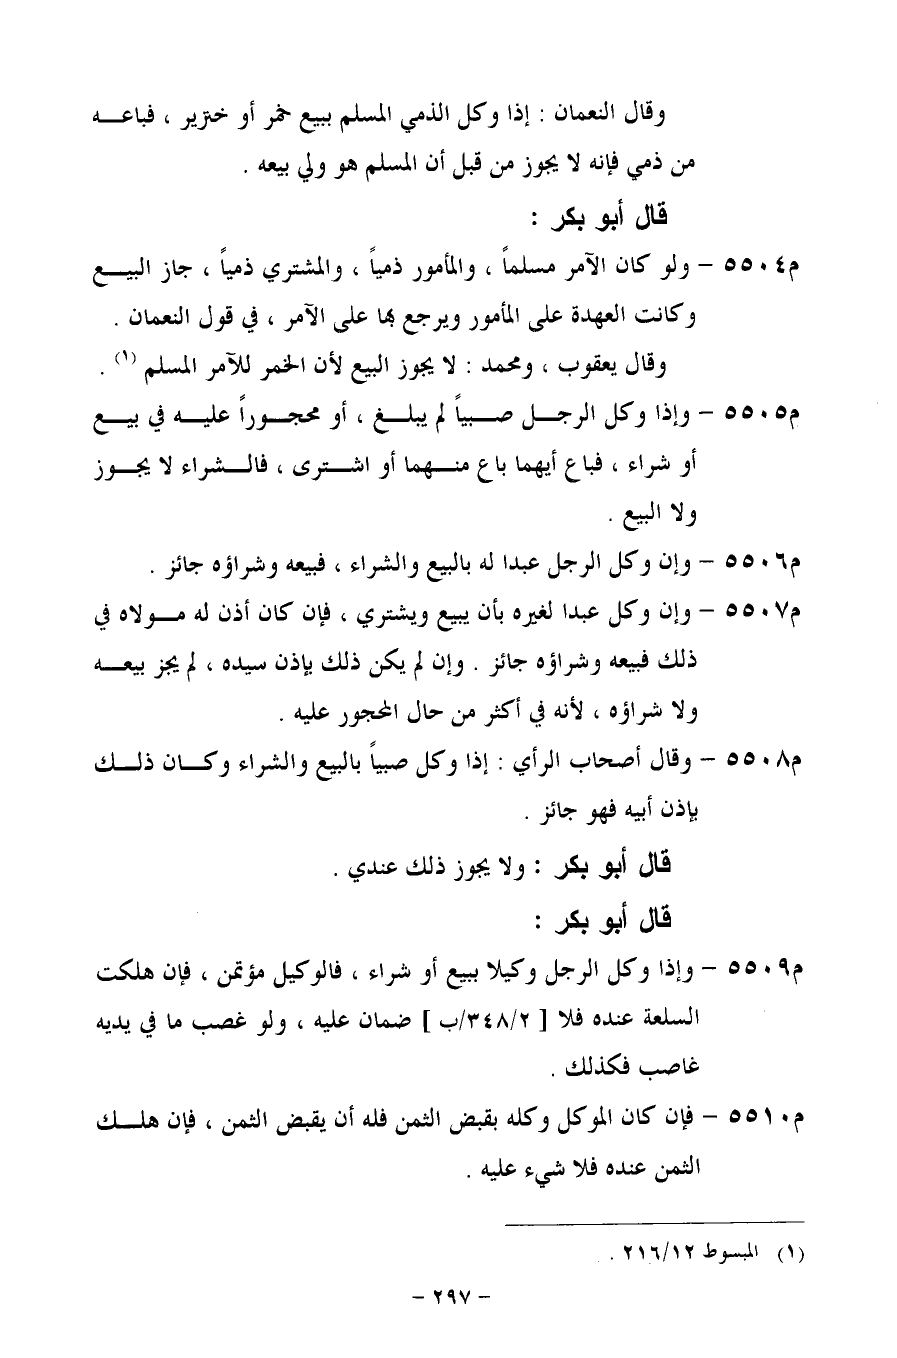 وقال النعمان : إذا وكل الذمي المسلم ببيع خمر أو خنزير ، فباعـــه
من ذمي فإنه لا يجوز من قبل أن المسلم هو ولي بيعه .
قال أبو بكر :
م٥٥٠٤ – ولو كان الآمر مسلماً ، والمأمور ذمياً ، والمشتري ذمياً ، جاز البيـــع
وكانت العهدة على المأمور ويرجع بها على الآمر ، في قول النعمان .
وقال يعقوب ، ومحمد : لا يجوز البيع لأن الخمر للآمر المسلم (١) .
م٥٥٠٥ – وإذا وكل الرجـــل صـــبياً لم يبلـــغ ، أو محجـــوراً عليـــه في بيـــع
أو شراء ، فباع أيهما باع منـــهما أو اشـــترى ، فالـــشراء لا يجـــوز
ولا البيع .
م٥٥٠٦ – وإن وكل الرجل عبدا له بالبيع والشراء ، فبيعه وشراؤه جائز .
م٥٥٠٧ – وإن وكل عبدا لغيره بأن يبيع ويشتري ، فإن كان أذن له مـــولاه في
ذلك فبيعه وشراؤه جائز . وإن لم يكن ذلك بإذن سيده ، لم يجز بيعـــه
ولا شراؤه ، لأنه في أكثر من حال المحجور عليه .
م٥٥٠٨ – وقال أصحاب الرأي : إذا وكل صبياً بالبيع والشراء وكـــان ذلـــك
بإذن أبيه فهو جائز .
قال أبو بكر : ولا يجوز ذلك عندي .
قال أبو بكر :
م٥٥٠٩ – وإذا وكل الرجل وكيلا ببيع أو شراء ، فالوكيل مؤتمن ، فإن هلكت
السلعة عنده فلا [ ٣٤٨/٢/ب ] ضمان عليه ، ولو غصب ما في يديه
غاصب فكذلك .
م٥٥١٠ – فإن كان الموكل وكله بقبض الثمن فله أن يقبض الثمن ، فإن هلـــك
الثمن عنده فلا شيء عليه .
(١) المبسوط ٢١٦/١٢ .
– ٢٩٧ –